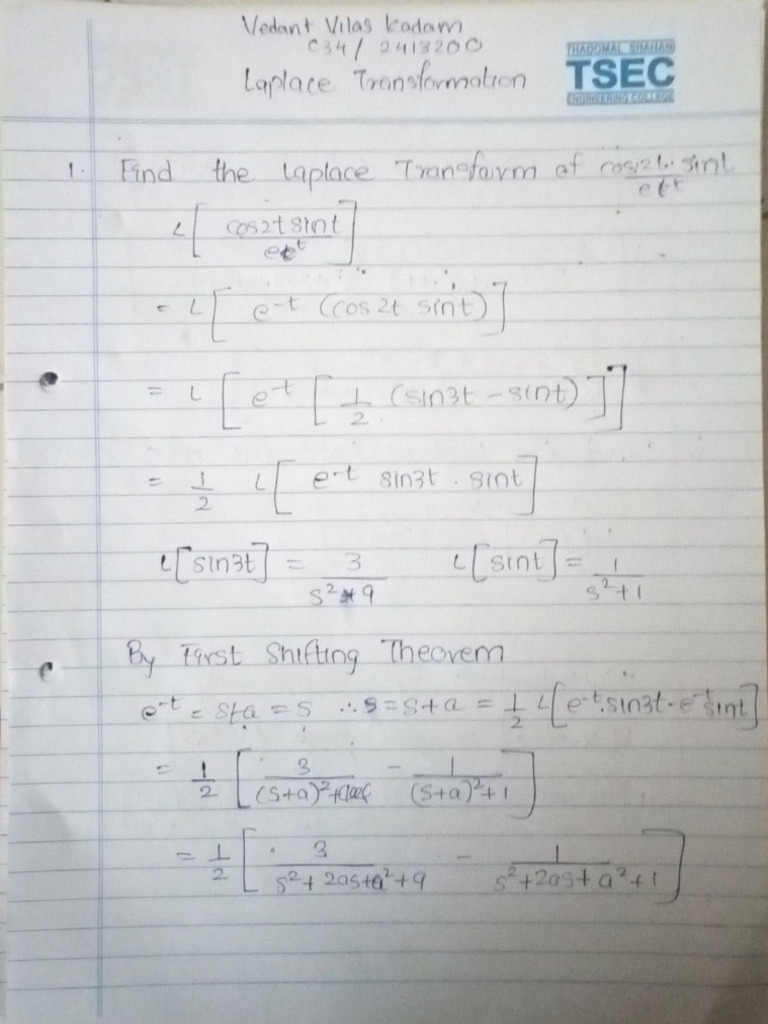 Vedant Vilas Kadam
C34 / 2413200
THADOMAL SHAHANI
TSEC
ENGINEERING COLLEGE
Laplace Transformation
1. Find the Laplace Transform of cos2t. sint / e^t
L[ cos2t sint / e^t ]
= L[ e^-t (cos2t sint) ]
= L[ e^-t [ 1/2 (sin3t - sint) ] ]
= 1/2 L[ e^-t sin3t . sint ]
L[sin3t] = 3/(s^2+9) L[sint] = 1/(s^2+1)
By First Shifting Theorem
e^-t = s+a = s ∴ s = s+a = 1/2 L[e^-t. sin3t - e^-t sint]
= 1/2 [ 3/((s+a)^2+ - 1/((s+a)^2+1) ]
= 1/2 [ 3/(s^2+2as+a^2+9) - 1/(s^2+2as+a^2+1) ]